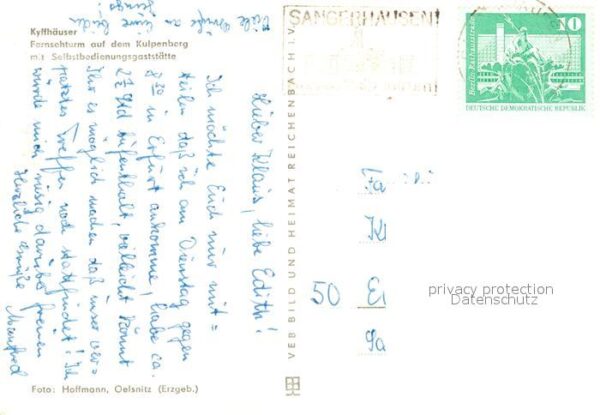 Kyffhäuser
Fernsehturm auf dem Kulpenberg
mit Selbstbedienungsgaststätte
Lieber Klaus, liebe Edith!
Ich möchte Euch nur mit=
teilen daß ich am Dienstag gegen
8³⁰ in Erfurt ankomme, habe ca.
2½ Std Aufenthalt, vielleicht könnt
Ihr es möglich machen daß unser ver=
patztes Treffen noch stattfindet! Ich
würde mich riesig darüber freuen
Herzliche Grüße
Manfred
Viele Grüße an Eure beiden
Jungs
Foto: Hoffmann, Oelsnitz (Erzgeb.)
VEB BILD UND HEIMAT REICHENBACH I. V.
SANGERHAUSEN
10
Berlin, Rathausstraße
DEUTSCHE DEMOKRATISCHE REPUBLIK
Fa
Kl
50 Er
9a
privacy protection
Datenschutz